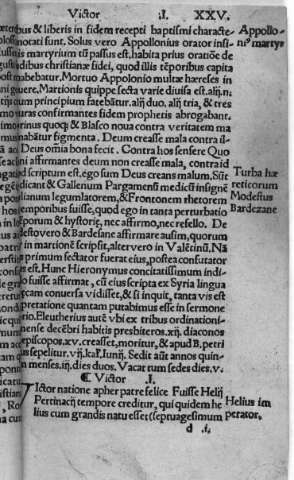 Victor .I. XXV.
bus & liberis in fidem recepti baptismi characte- Appollo-
norati sunt. Solus vero Appollonius orator insi- niꝰ martyr
martyrium tũ passus est, habita prius oratiõe de
dibus christianæ fidei, quod illis tẽporibus capita
habebatur. Mortuo Appolonio multæ hæreses in
guere, Martionis quippe secta varie diuisa est. alij.n.
cum principium fatebãtur. alij duo, alij tria, & tres
uras confirmantes fidem prophetis abrogabant.
rinus quoqꝫ & Blasco noua contra veritatem ma
nabãtur figmenta. Deum creasse mala contra il-
Deus oĩa bona fecit. Contra hos sensere Quo
ni affirmantes deum non creasse mala, contra id
d scriptum est. ego sum Deus creans malum, Sũt Turba hæ
dicant & Gallenum Pargamenũ medicũ insignẽ reticorum
lianum legumlatorem, & Frontonem rhetorem Modestus
emporibus fuisse, quod ego in tanta perturbatio Bardezane
porum & hystoriç, nec affirmo, nec refello. De
destovero & Bardesane affirmare ausim, quorum
in martionẽ scripsit, altervero in Valẽtinũ. Nã
primum sectator fuerat eius, postea confutator
s est. Hunc Hieronymus concitatissimum indi-
o fuisse affirmat, cũ eius scripta ex Syria lingua
cam conuersa vidisset, & si inquit, tanta vis est
pretatione quantam putabimus esse in sermone
rio. Eleutherius autẽ vbi ex tribus ordinationi-
mense decẽbri habitis presbiteros .xij. diaconos
episcopos .xv. creasset, moritur, & apud B. petri
us sepelitur. vij. kał. Iunij. Sedit aũt annos quin-
menses, iij. dies duos. Vacat tum sedes dies. v.
¶ Victor .I.
Ictor natione apher patre felice Fuisse Helij
Pertinacij tempore creditur, qui quidem he Helius im
lius cum grandis natu esset (septuagesimum perator.
d .j.